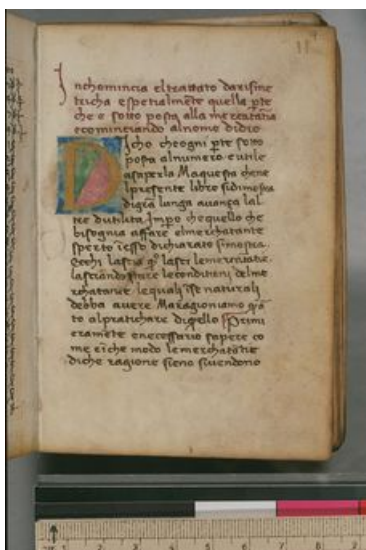 Inchomincia el trattato darisme
tricha e spetialmēte quella pte
che e sotto posta alla mercatātia
ecominciando alnome didio
Dicho cheogni pte sotto
posta alnumero e utile
asaperla Maquesta chene
lpresente libro sidimostra
digrā lunga avança lal
tre dutilita Impo chequello che
bisognia affare elmerchatante
sperto īesso dichiarato simostra
lasciando stare leconditioni delme
rchatante lequali īse naturali
debba avere Maragioniamo
to alpratichare diqello Primi
eramēte enecessario sapere co
me eīche modo lemerchatātie
diche ragione sieno sivendono